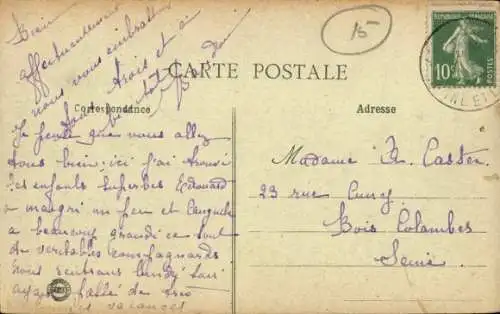 15
RÉPUBLIQUE FRANÇAISE
10c
POSTES
CARTE POSTALE
Correspondance
Adresse
Je pense que vous allez
tous bien; ici j'ai trouvé
les enfants superbes Edouard
a maigri un peu et
a beaucoup grandi ce sont
de véritables campagnards
nous rentrons lundi soir
ayant
vacances
Bien
affectueusement
nous vous embrasse
tous trois et à
Madame A. Casten
23 rue Cuny
Bois Colombes
Seine